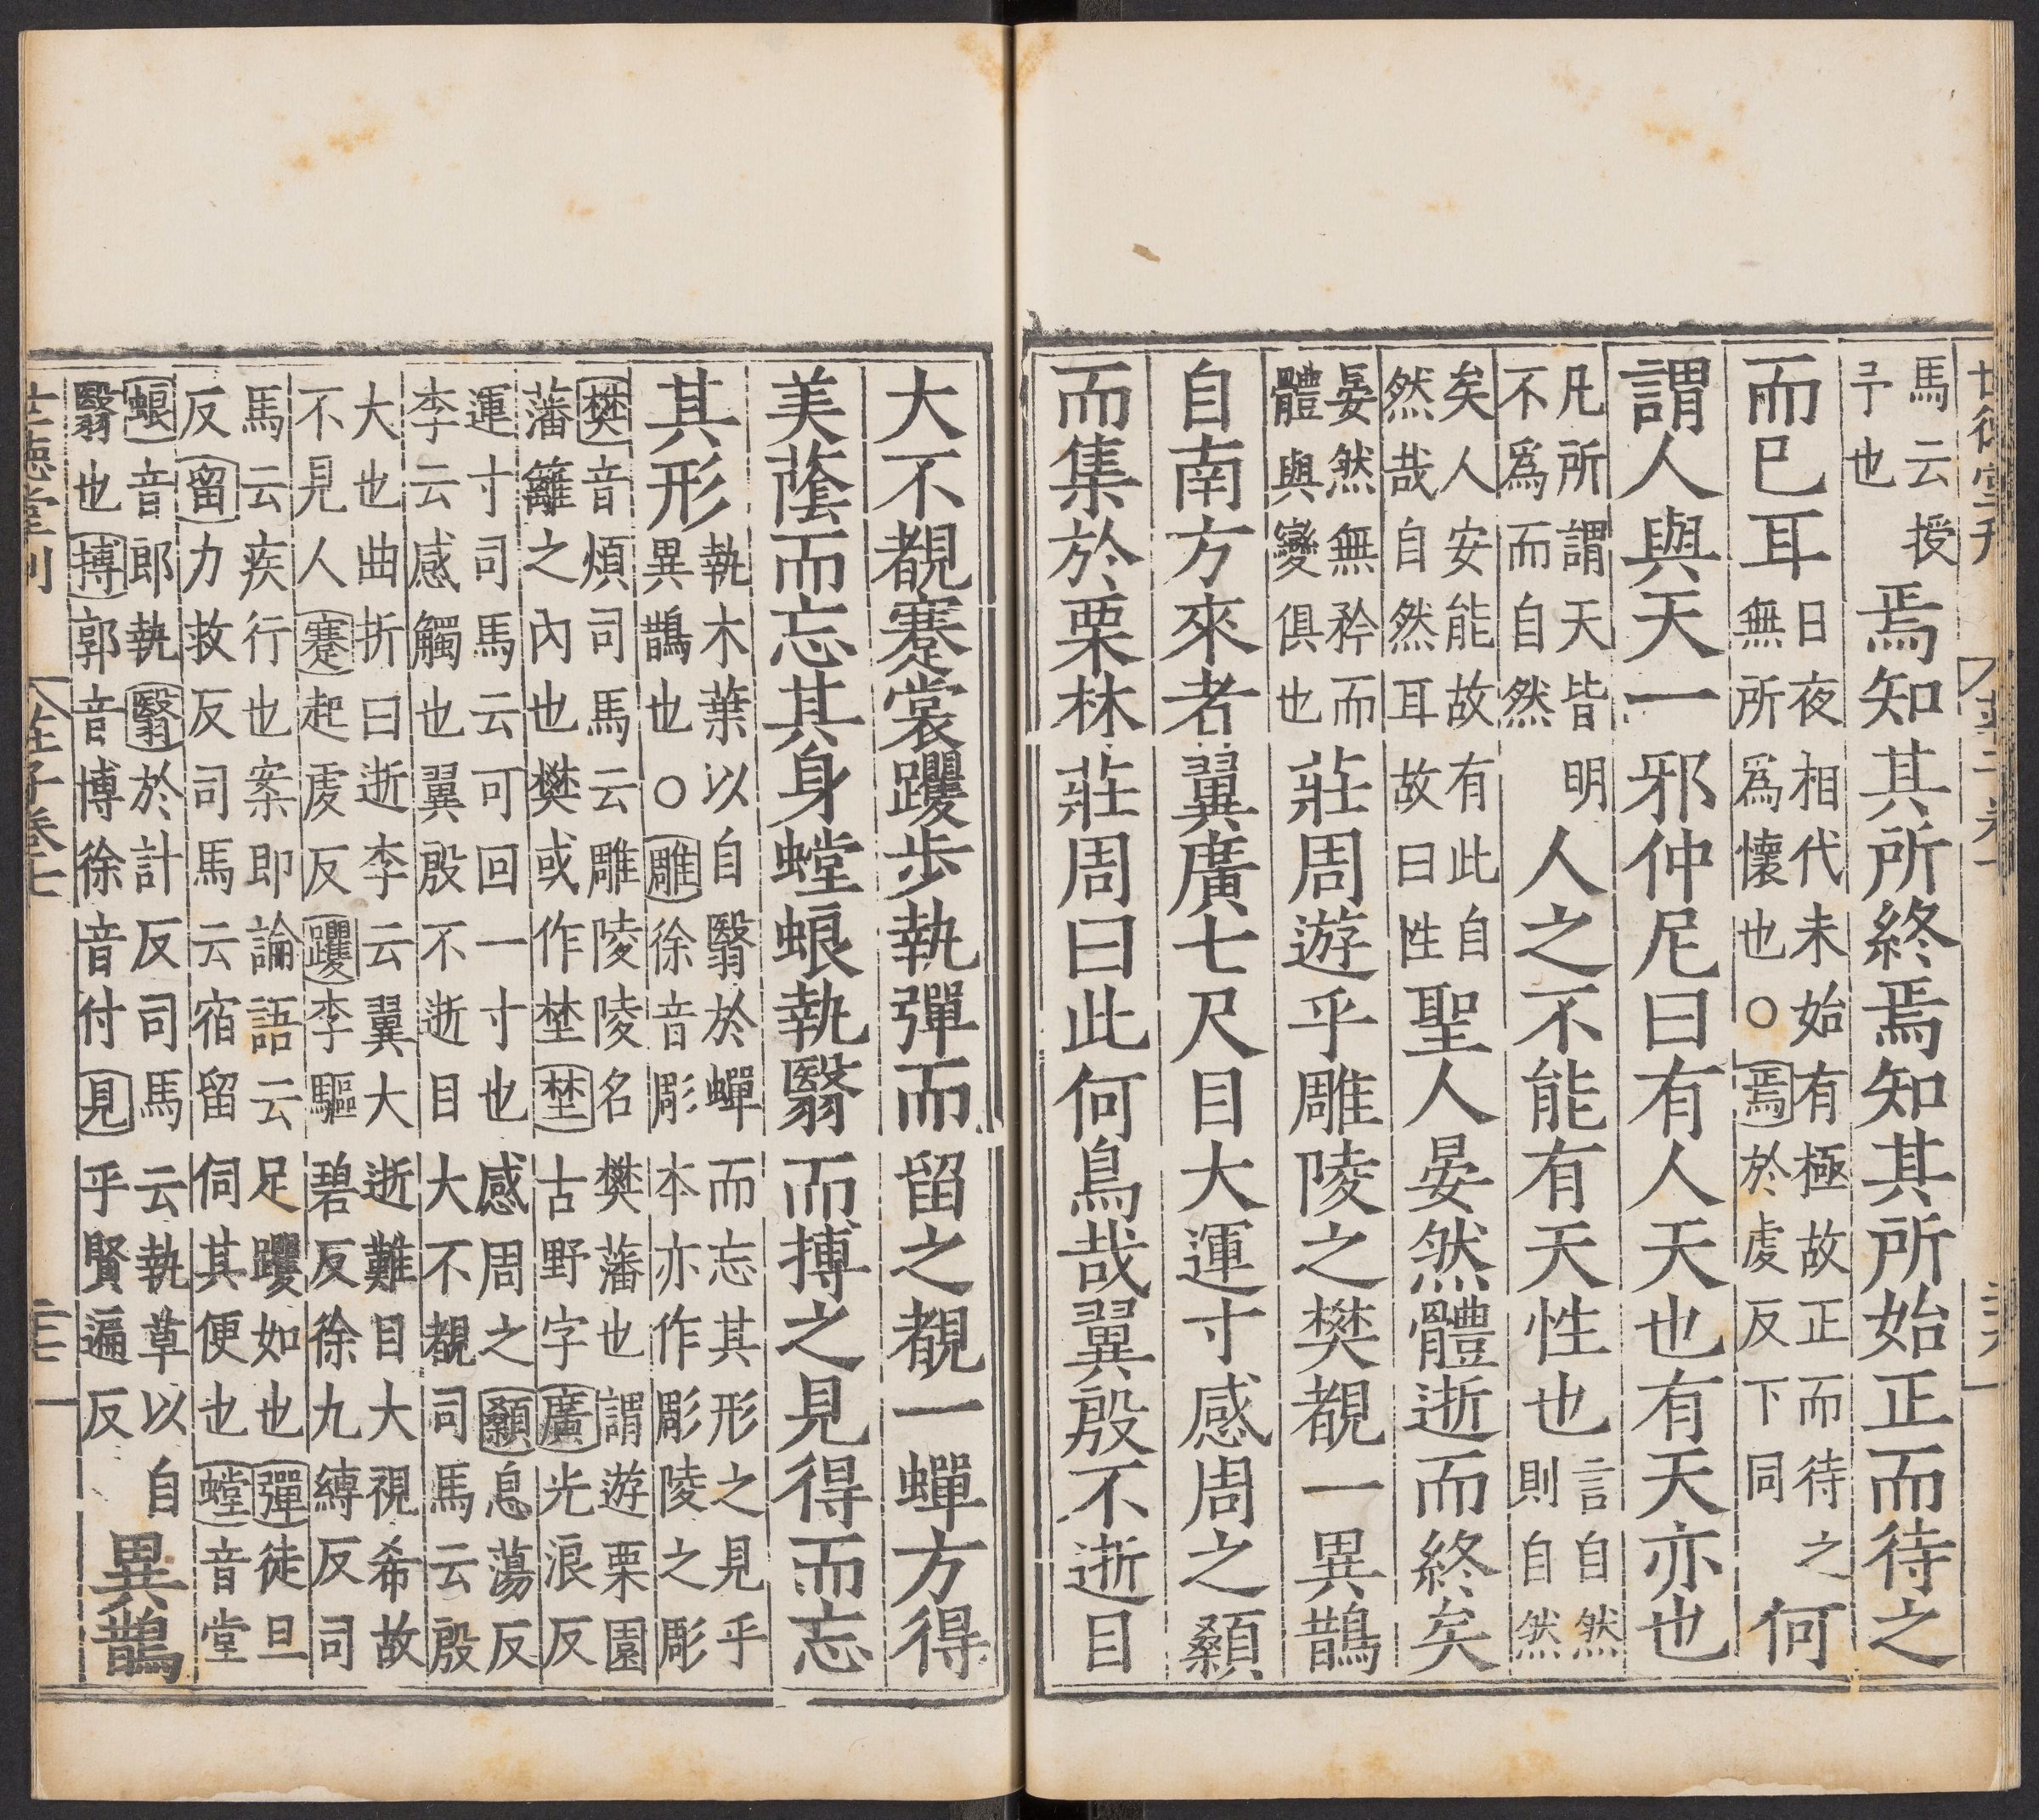 馬云授
予也
焉知其所終焉知其所始正而待之
而巳耳
日夜相代未始有極故正而待之
無所爲懷也○焉於虔反下同
何
謂人與天一邪仲尼曰有人天也有天亦也
凡所謂天皆明
不爲而自然
人之不能有天性也
言自然
則自然
矣人安能故有此自
然哉自然耳故曰性
聖人晏然體逝而終矣
晏然無矜而
體與變俱也
莊周遊乎雕陵之樊覩一異鵲
自南方來者翼廣七尺目大運寸感周之顙
而集於栗林莊周曰此何鳥哉翼殷不逝目
大不覩蹇裳躩步執彈而留之覩一蟬方得
美蔭而忘其身螳蜋執翳而搏之見得而忘
其形
執木葉以自翳於蟬而忘其形之見乎
異鵲也○雕徐音彫本亦作彫陵之彫
樊音煩司馬云雕陵陵名樊藩也謂遊栗園
藩籬之內也樊或作埜埜古野字廣光浪反
運寸司馬云可回一寸也感周之顙息蕩反
李云感觸也翼殷不逝目大不覩司馬云殷
大也曲折曰逝李云翼大逝難目大視希故
不見人蹇起虔反躩李驅碧反徐九縛反司
馬云疾行也案即論語云足躩如也彈徒旦
反留力救反司馬云宿留伺其便也螳音堂
蜋音郎執翳於計反司馬云執草以自
翳也搏郭音博徐音付見乎賢遍反
異鵲
世德堂刊
莊子卷七